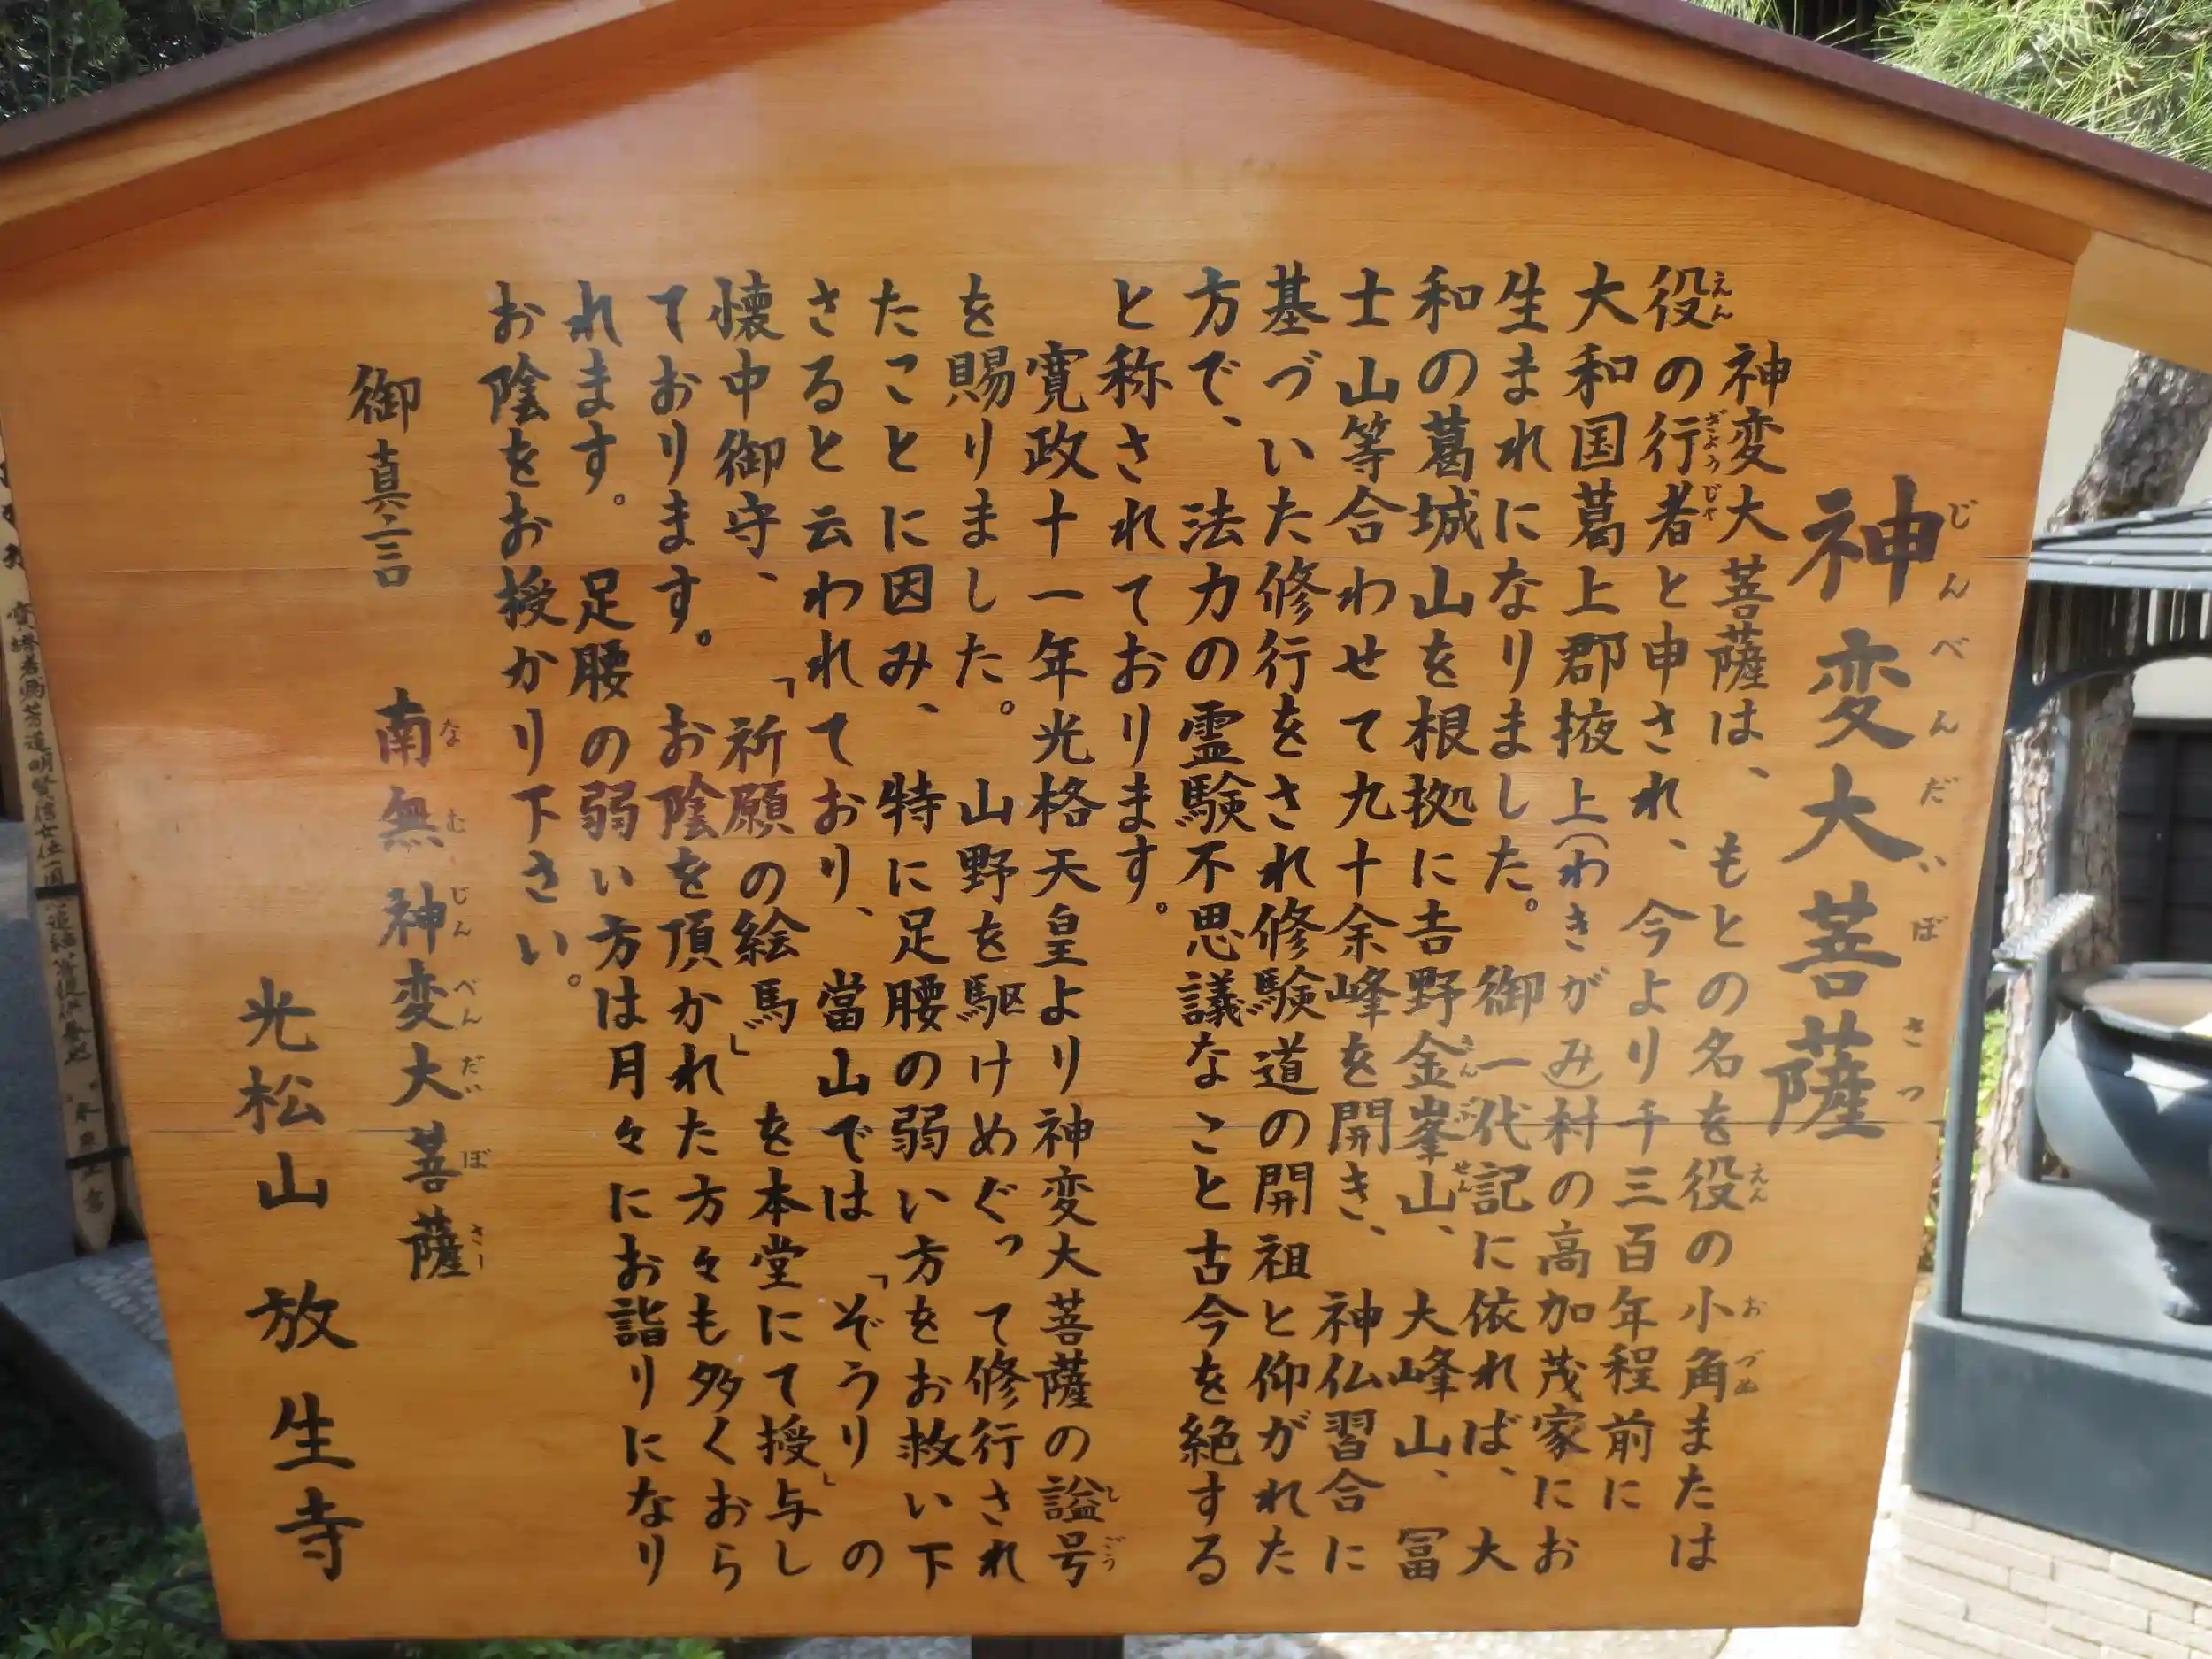 神変大菩薩
じんべんだいぼさつ
神変大菩薩は、もとの名を役の小角または
えん
おづぬ
役の行者と申され、今より千三百年程前に
えん
ぎようじや
大和国葛上郡掖上(わきがみ)村の高加茂家にお
生まれになりました。御一代記に依れば、大
和の葛城山を根拠に吉野金峯山、大峰山、冨
きん
せん
士山等合わせて九十余峰を開き、神仏習合に
基づいた修行をされ修験道の開祖と仰がれた
方で、法力の霊験不思議なこと古今を絶する
と称されております。
寛政十一年光格天皇より神変大菩薩の謚号
しごう
を賜りました。山野を駆けめぐって修行され
たことに因み、特に足腰の弱い方をお救い下
さると云われており、當山では「ぞうり」の
懐中御守、「祈願の絵馬」を本堂にて授与し
ております。お陰を頂かれた方々も多くおら
れます。足腰の弱い方は月々にお詣りになり
お陰をお授かり下さい。
御真言 南無神変大菩薩
なむじんべんだいぼさー
光松山 放生寺